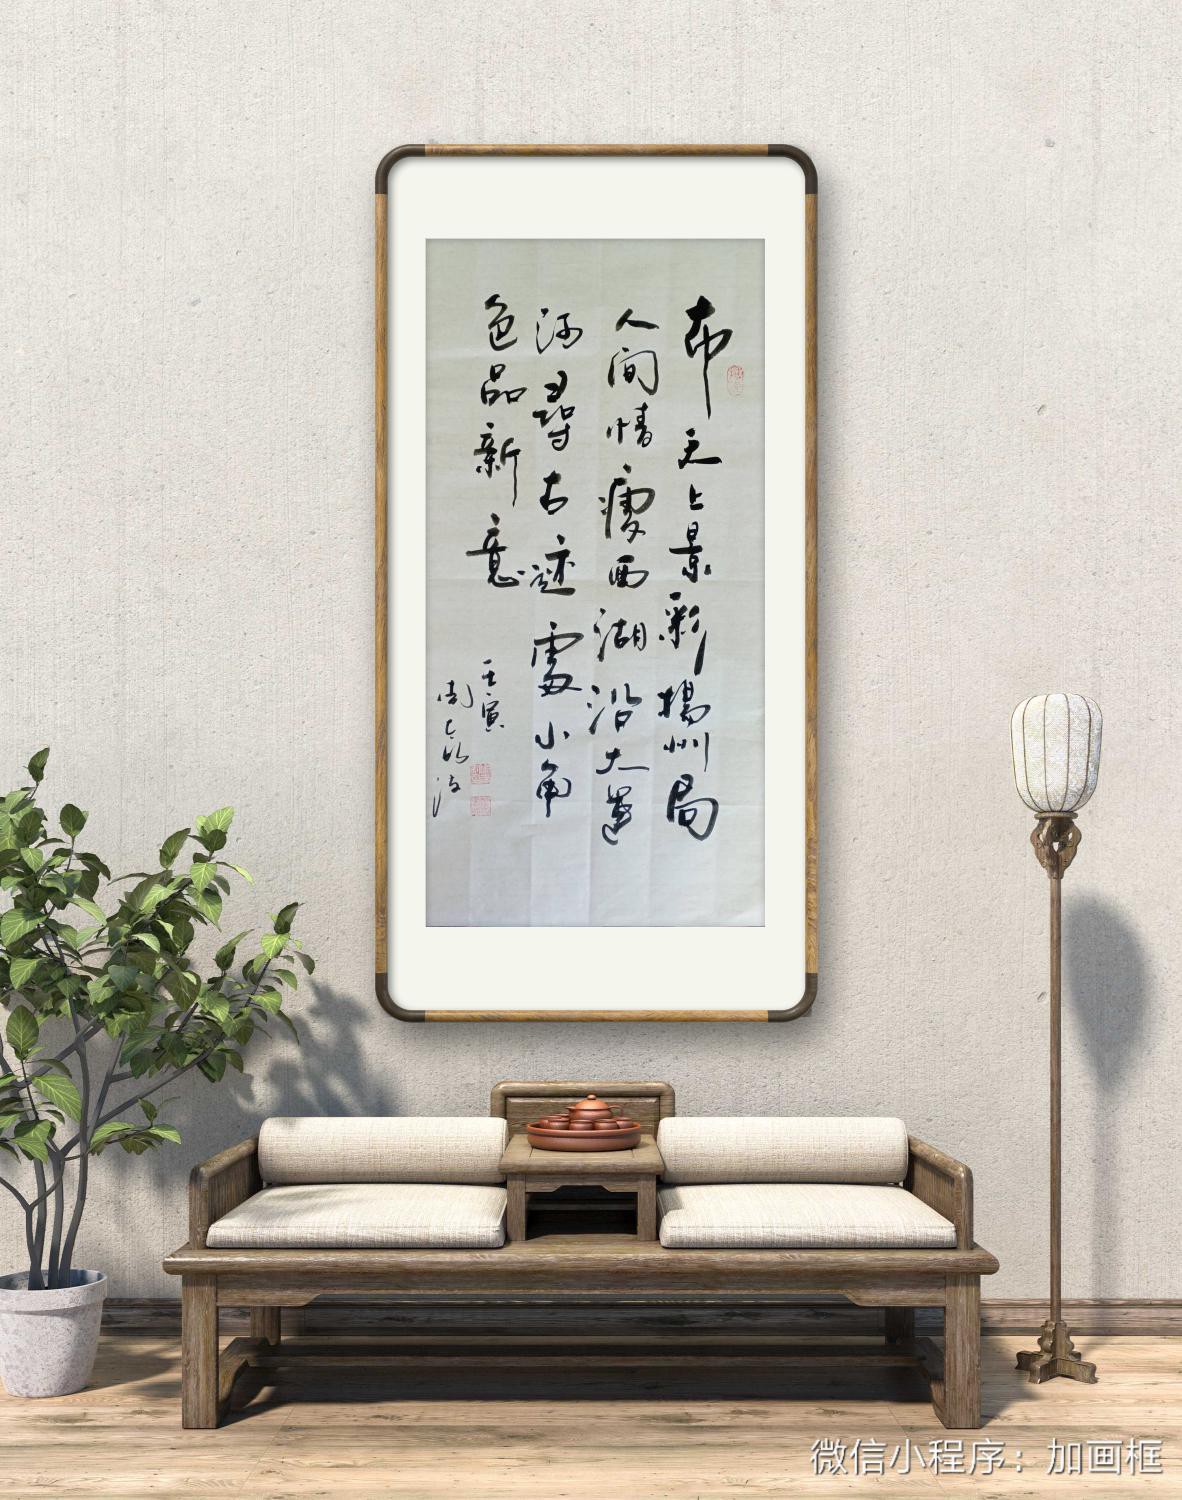 布天上景彩揚州局
人间情瘦西湖沿大運
河尋古迹處小角
色品新意
壬寅
周
波
微信小程序：加画框